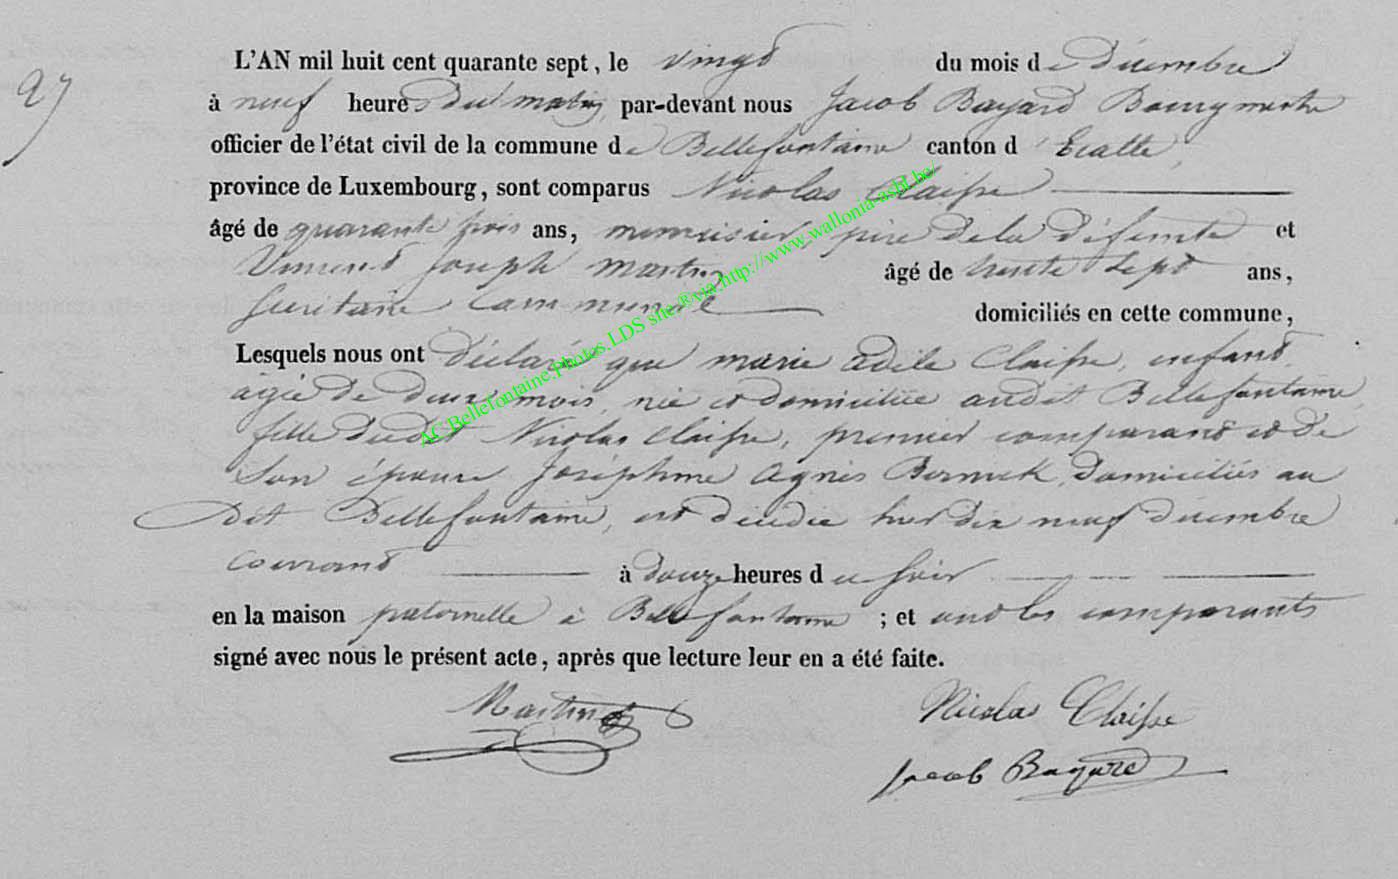 97
L'AN mil huit cent quarante sept, le vingt du mois de Décembre
à neuf heures du matin, par-devant nous Jacob Bayard Bourgmestre
officier de l'état civil de la commune de Bellefontaine canton d'Etalle,
province de Luxembourg, sont comparus Nicolas Claisse
âgé de quarante trois ans, menuisier, père de la défunte et
Vincent Joseph Martin âgé de trente sept ans,
Secrétaire Communal domiciliés en cette commune,
Lesquels nous ont déclaré que marie adèle Claisse, enfant
agée de deux mois, née et domiciliée audit Bellefontaine,
fille dudit Nicolas Claisse, premier comparant et de
Son épouse Joséphine Agnès domiciliés au
Dit Bellefontaine, est décédée hier dix neuf décembre
courant à douze heures du soir
en la maison paternelle à Bellefontaine ; et ont les comparants
signé avec nous le présent acte, après que lecture leur en a été faite.
Martin
Nicolas Claisse
Jacob Bayard
AC Bellefontaine.Photos.LDS site.®via.http://www.wallonia-asbl.be/